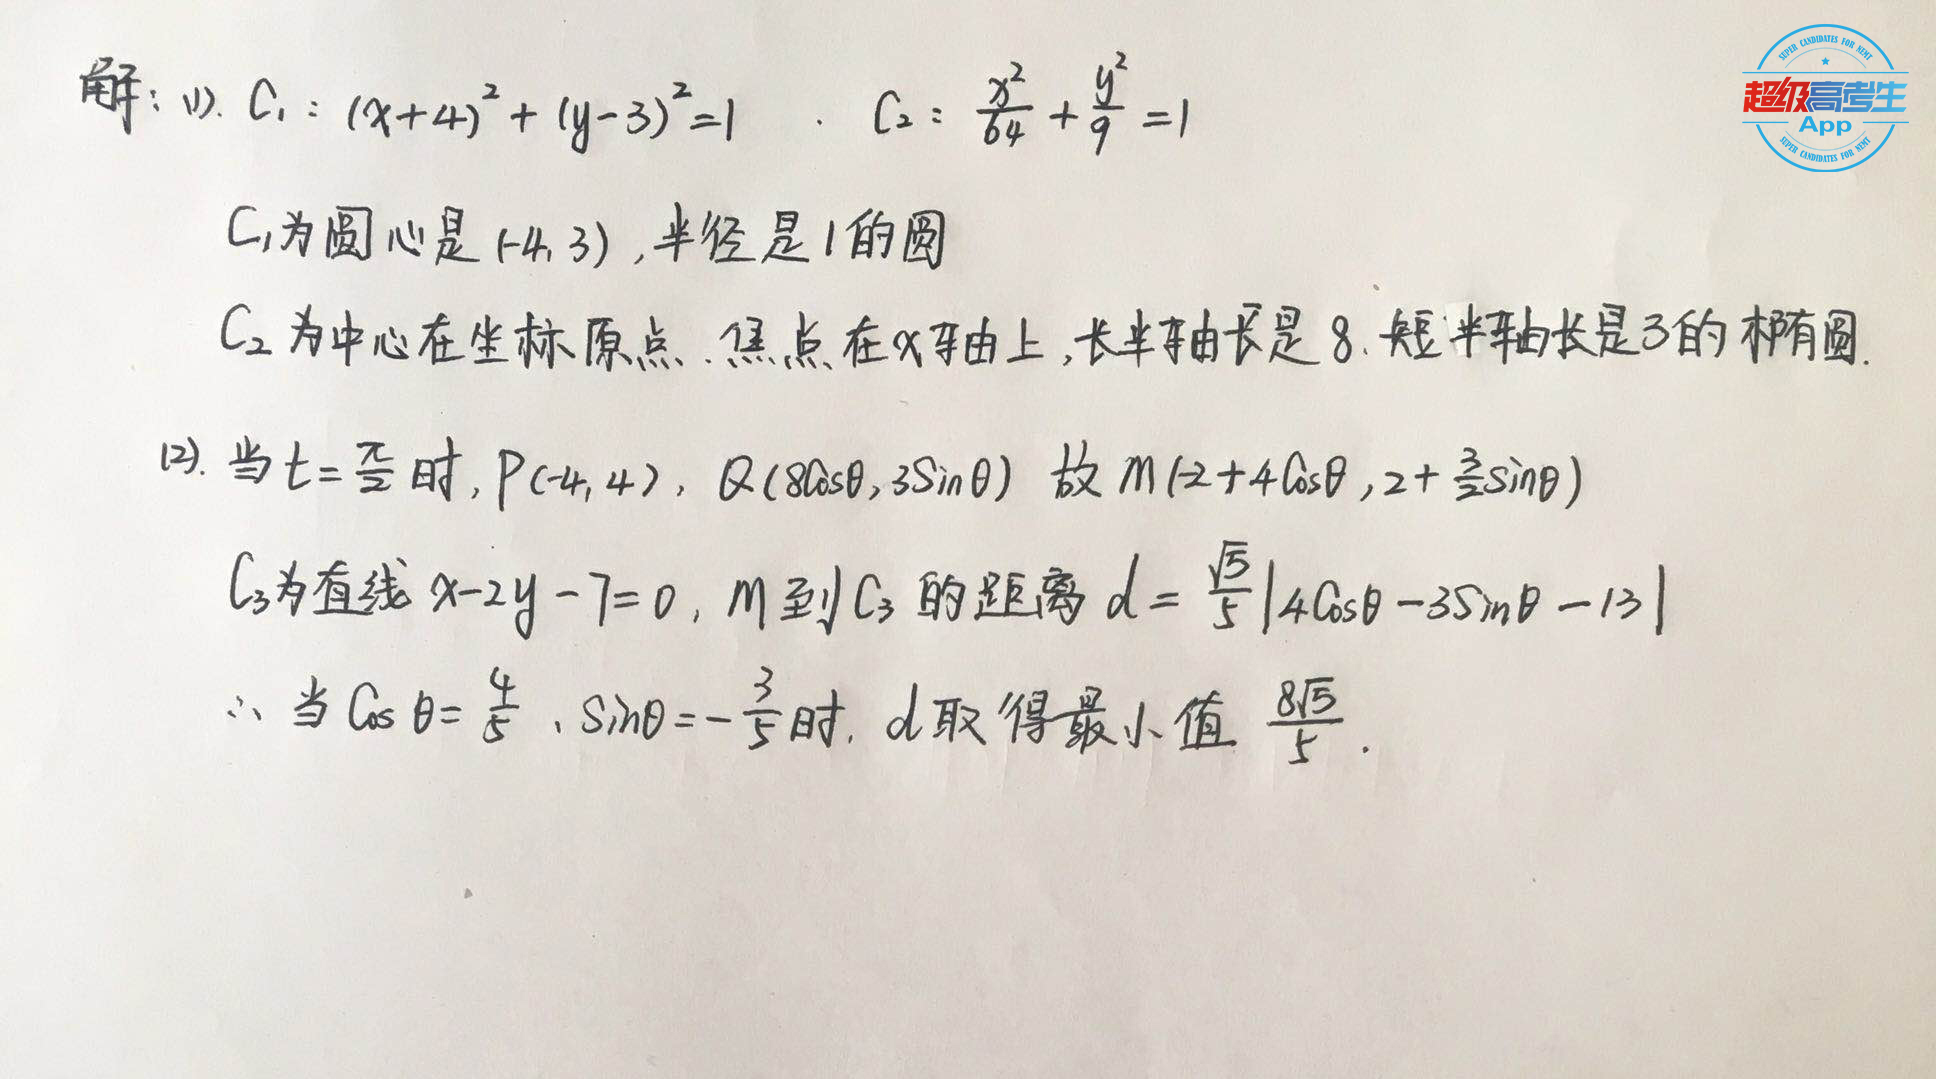 解：(1). C₁：(x+4)²+(y-3)²=1 . C₂：x²/64+y²/9=1
C₁为圆心是(-4,3),半径是1的圆
C₂为中心在坐标原点.焦点在x轴上,长半轴长是8.短半轴长是3的椭圆.
(2).当t=π/2时,P(-4,4),Q(8Cosθ,3Sinθ) 故M(-2+4Cosθ,2+3/2sinθ)
C₃为直线x-2y-7=0,M到C₃的距离d=√5/5|4Cosθ-3Sinθ-13|
∴当Cosθ=4/5、Sinθ=-3/5时.d取得最小值 8√5/5.
SUPER CANDIDATES FOR NEMT
超级高考生
App
SUPER CANDIDATES FOR NEMT